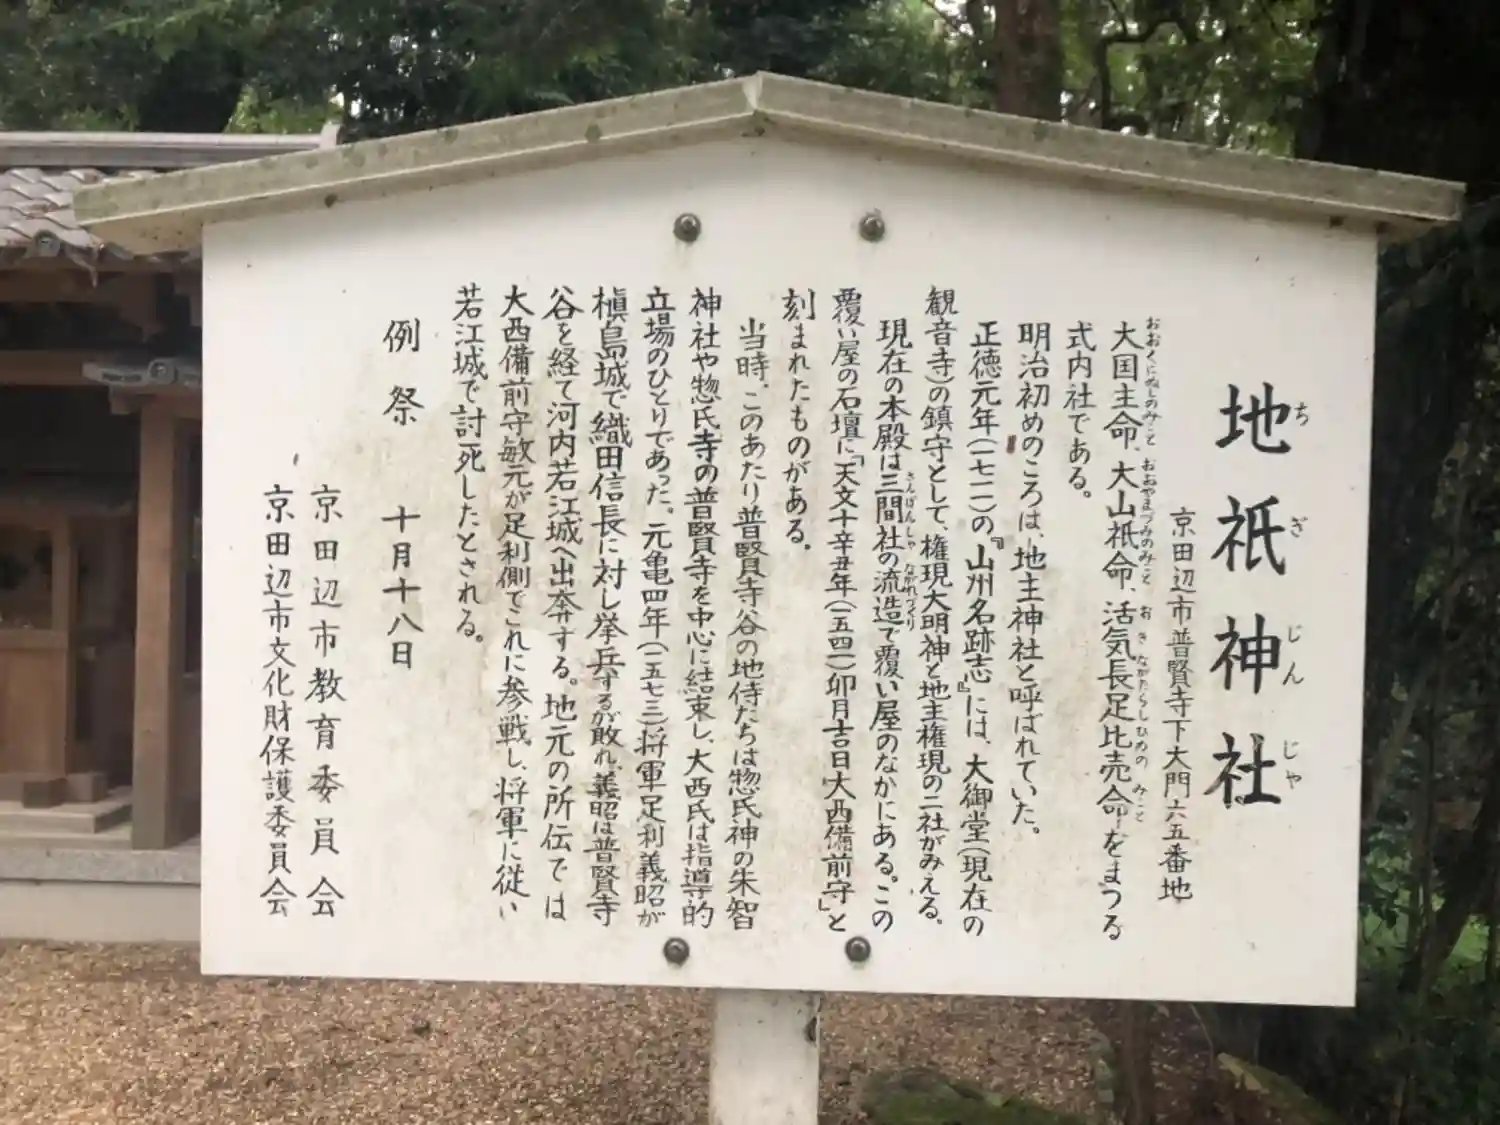 地祇神社
京田辺市普賢寺下大門六五番地
大国主命、大山祇命、活気長足比売命をまつる
式内社である。
明治初めのころは、地主神社と呼ばれていた。
正徳元年(一七一一)の『山州名跡志』には、大御堂(現在の
観音寺)の鎮守として、権現大明神と地主権現の二社がみえる。
現在の本殿は三間社の流造で覆い屋のなかにある。この
覆い屋の石壇に「天文十辛丑年(一五四一)卯月吉日大西備前守」と
刻まれたものがある。
当時、このあたり普賢寺谷の地侍たちは惣氏神の朱智
神社や惣氏寺の普賢寺を中心に結束し、大西氏は指導的
立場のひとりであった。元亀四年(一五七三)将軍足利義昭が
槇島城で織田信長に対し挙兵するが敗れ、義昭は普賢寺
谷を経て河内若江城へ出奔する。地元の所伝では
大西備前守敏元が足利側でこれに参戦し、将軍に従い
若江城で討死したとされる。
例祭 十月十八日
京田辺市教育委員会
京田辺市文化財保護委員会